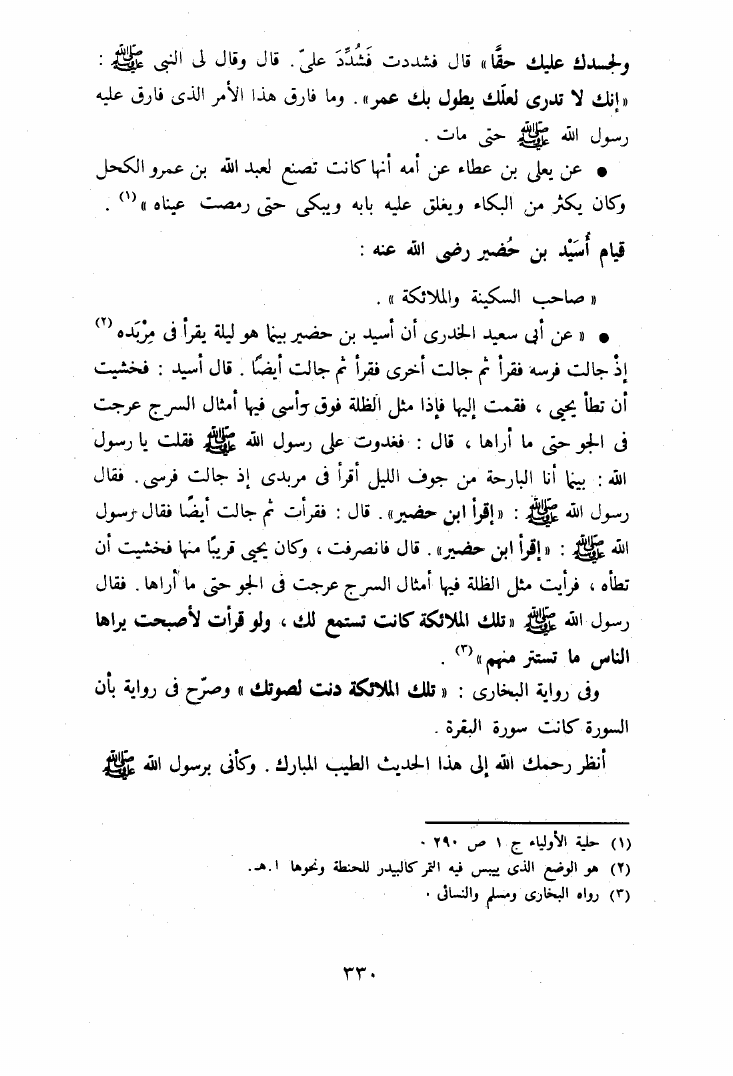 ولجسدك عليك حقًّا» قال فشددت فَشُدِّدَ عليّ. قال وقال لى النبى ﷺ :
«إنك لا تدرى لعلّك يطول بك عمر». وما فارق هذا الأمر الذى فارق عليه
رسول الله ﷺ حتى مات .
● عن يعلى بن عطاء عن أمه أنها كانت تصنع لعبد الله بن عمرو الكحل
وكان يكثر من البكاء ويغلق عليه بابه ويبكى حتى رمصت عيناه» (١) .
قيام أُسَيْد بن حُضير رضى الله عنه :
« صاحب السكينة والملائكة » .
● « عن أبى سعيد الخدرى أن أسيد بن حضير بينما هو ليلة يقرأ فى مِرْبَده (٢)
إذْ جالت فرسه فقرأ ثم جالت أخرى فقرأ ثم جالت أيضًا . قال أسيد : فخشيت
أن تطأ يحيى ، فقمت إليها فإذا مثل الظلة فوق رأسى فيها أمثال السرج عرجت
فى الجو حتى ما أراها ، قال : فغدوت على رسول الله ﷺ فقلت يا رسول
الله : بينما أنا البارحة من جوف الليل أقرأ فى مربدى إذ جالت فرسى . فقال
رسول الله ﷺ : «إقرأ ابن حضير» . قال : فقرأت ثم جالت أيضًا فقال رسول
الله ﷺ : «إقرأ ابن حضير» . قال فانصرفت ، وكان يحيى قريبًا منها فخشيت أن
تطأه ، فرأيت مثل الظلة فيها أمثال السرج عرجت فى الجو حتى ما أراها . فقال
رسول الله ﷺ «تلك الملائكة كانت تستمع لك ، ولو قرأت لأصبحت يراها
الناس ما تستتر منهم» (٣) .
وفى رواية البخارى : « تلك الملائكة دنت لصوتك » وصرّح فى رواية بأن
السورة كانت سورة البقرة .
أنظر رحمك الله إلى هذا الحديث الطيب المبارك . وكأنى برسول الله ﷺ
(١) حلية الأولياء ج ١ ص ٢٩٠ .
(٢) هو الوضع الذى ييبس فيه التمر كالبيدر للحنطة ونحوها ا.هـ.
(٣) رواه البخارى ومسلم والنسائى .
٣٣٠